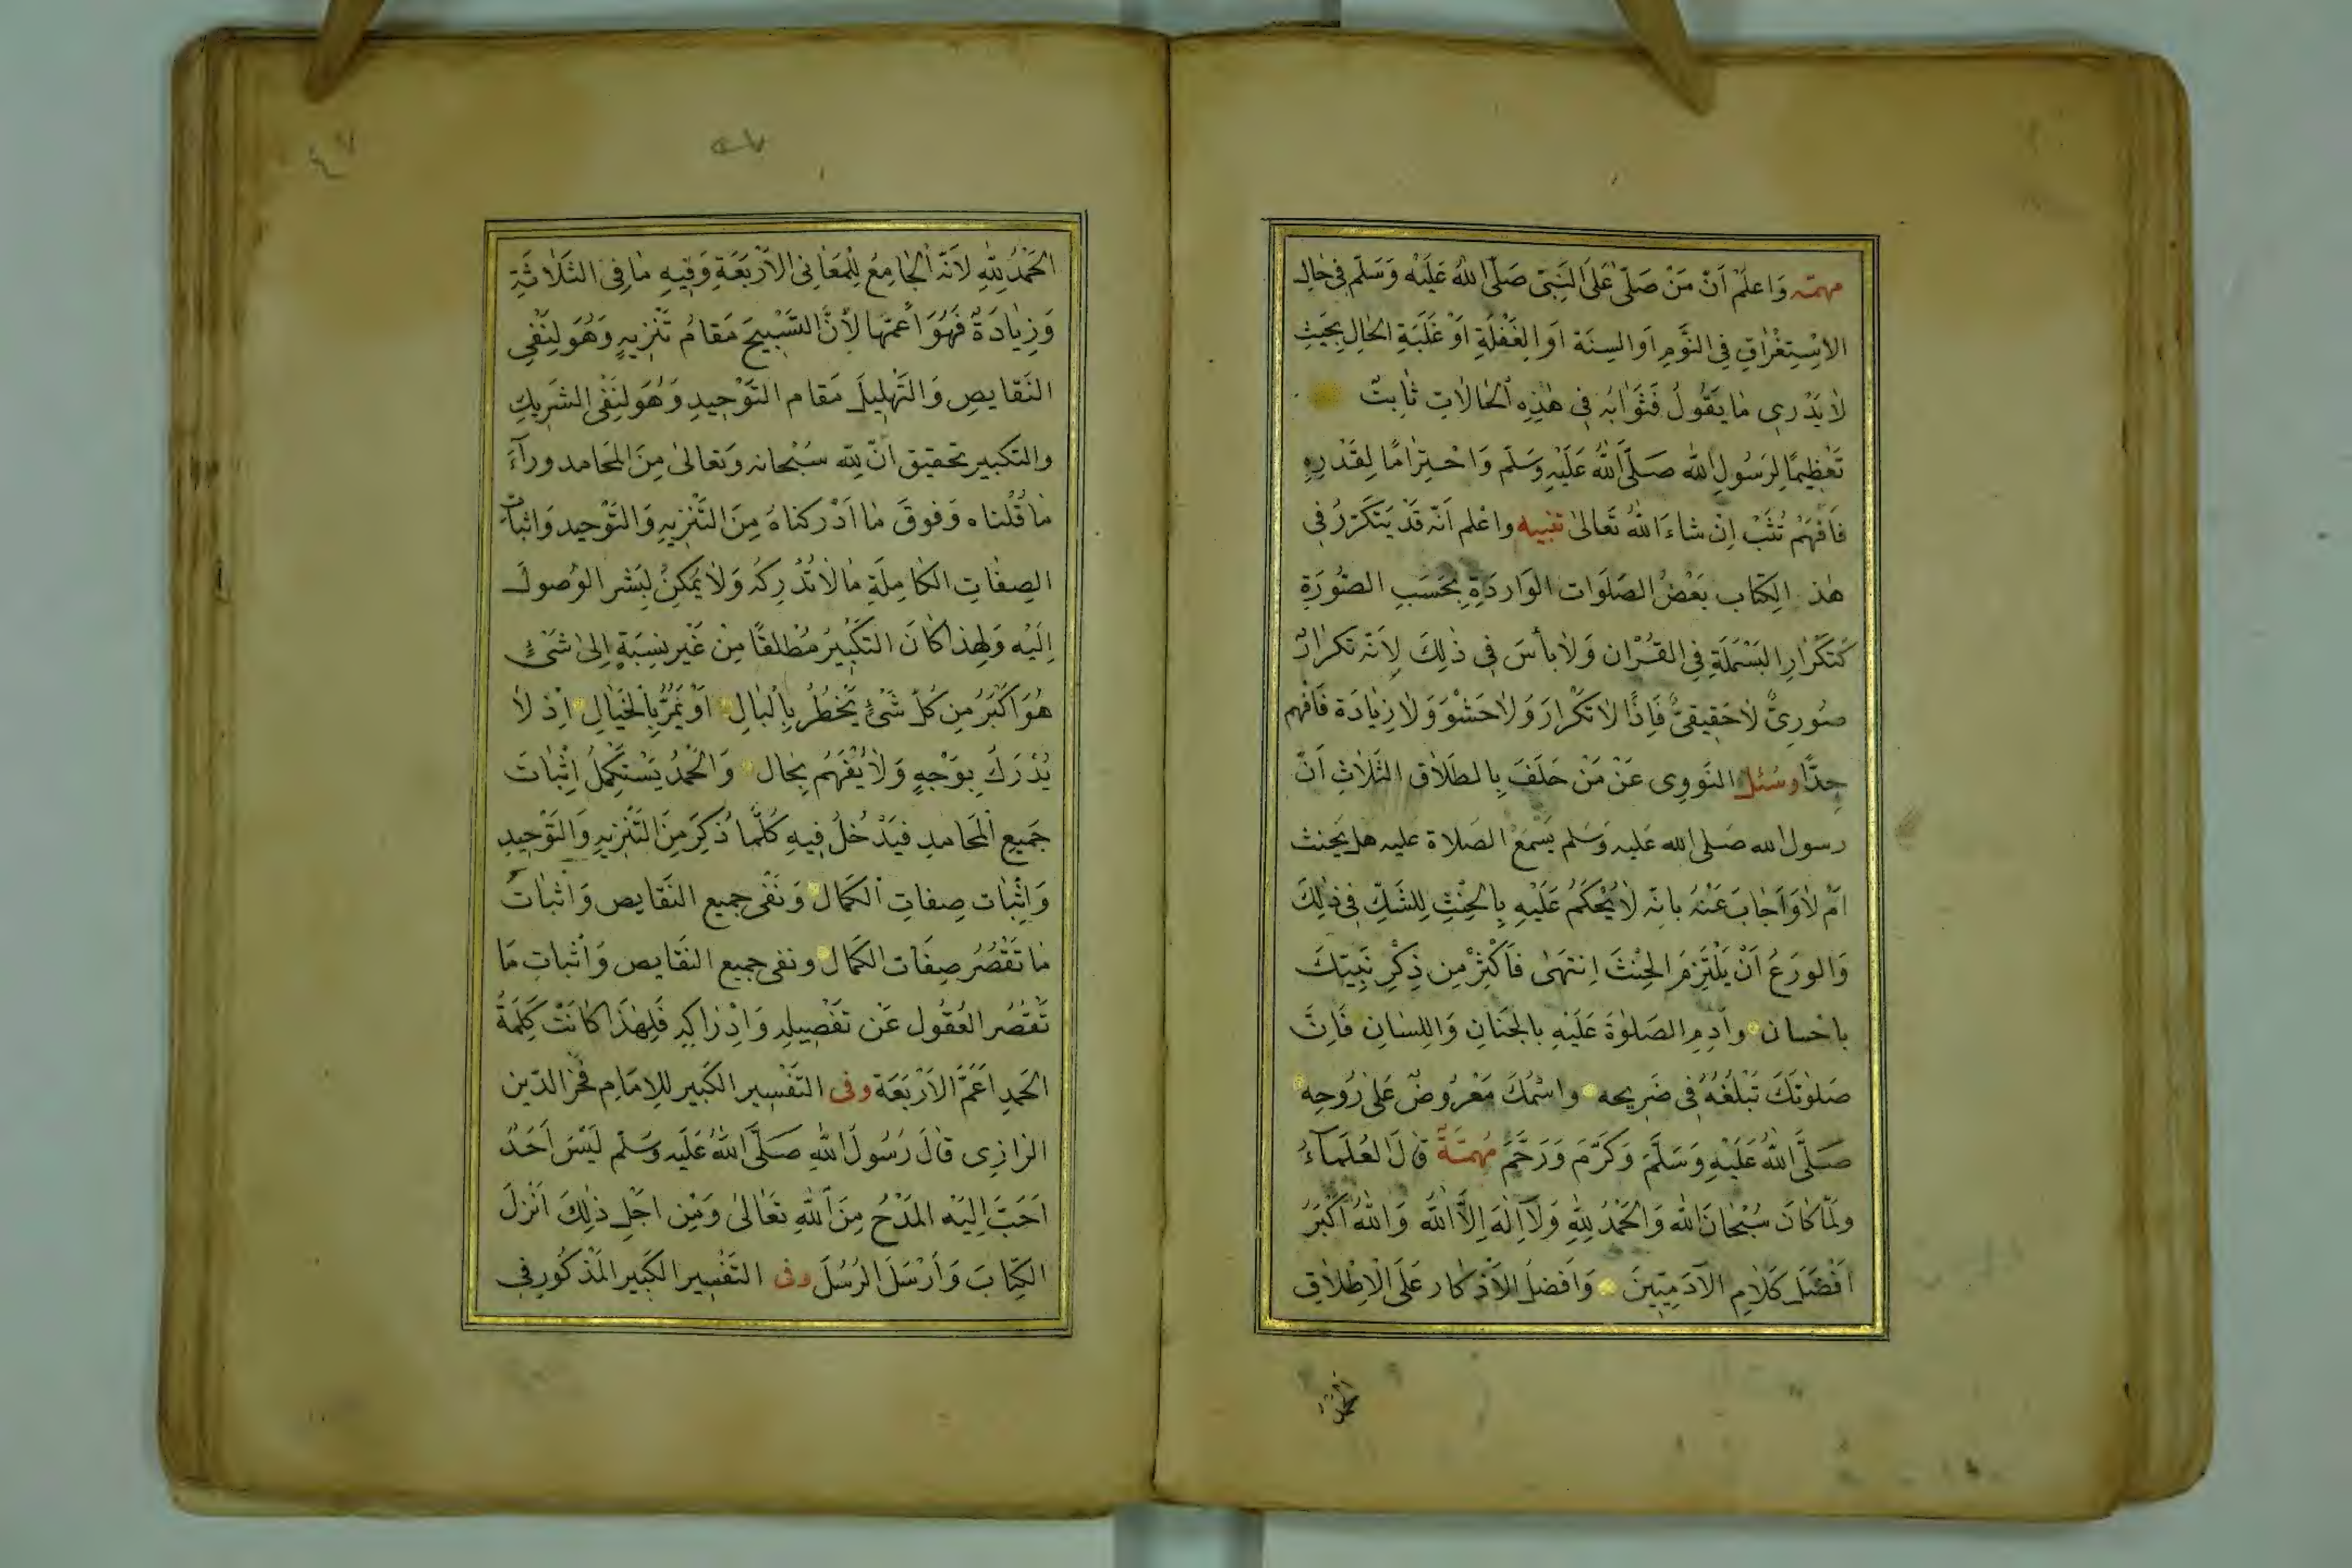 مهمّه وَاعلَمْ اَنَّ مَنْ صَلّٰى عَلَى النَّبِىّ صَلَّى اللهُ عَلَيْه وَسَلَّم فِى حَالِ
الاِسْتِغْرَاقِ فِى النَّوْمِ اَوِ السِنَة اَوِ الغَفْلَةِ اَوْ غَلَبَةِ الحَالِ بِحَيْثُ
لَا يَدْرِى مَا يَقُولُ فَثَوَابُه فِى هٰذِهِ الحَالَاتِ ثَابِتٌ
تَعْظِيمًا لِرَسُولِ الله صَلَّى اللهُ عَلَيْهِ وَسَلَّم وَاحْتِرَامًا لِقَدْرِهِ
فَافْهَمْ تُثَبْ اِنْ شَاءَ اللهُ تَعَالىٰ تنبيه واعْلم اَنّه قَدْ يَتَكَرَّرُ فِى
هٰذ الكِتَاب بَعْضُ الصَلَوَات الوَارِدَةِ بِحَسَبِ الصُّورَةِ
كَتَكْرَارِ البَسْمَلَةِ فِى القُرْآن وَلَا بأسَ فِى ذٰلِكَ لِاَنَّه تَكرَارٌ
صُورِىٌّ لَا حَقِيقِىٌّ فَاِذًا لَا تَكْرَارَ وَلَا حَشْوَ وَلَا زِيَادَة فَافْهم
جِدًّا وسُئل النَّوَوِى عَنْ مَنْ حَلَفَ بِالطَلَاق الثَلَاثِ اَنَّ
رسول الله صَلى الله عَليه وَسَلم يَسْمَعُ الصَلاة عليه هل يَحنث
اَمْ لَا وَاَجَابَ عَنْهُ بانّه لَا يُحْكَمُ عَلَيْهِ بِالحِنْثِ لِلشَكِّ فِى ذٰلِكَ
وَالورَعُ اَنْ يَلْتَزِمَ الحِنْثَ اِنتهىٰ فَاَكْثِرْ مِن ذِكْرِ نَبِيّكَ
باحْسان وأَدِمِ الصَلوٰةَ عَلَيْهِ بالجَنَانِ وَاللِسَانِ فَاِنَّ
صَلوٰتَكَ تَبْلُغُهُ فِى ضَرِيحه واسْمُكَ مَعْرُوضٌ عَلىٰ رُوحِه
صَلَّى اللهُ عَلَيْهِ وَسَلَّمَ وَكَرَّمَ وَرَحَّمَ مُهِمَّةٌ قَالَ العُلَمَآءُ
ولَمَّا كَانَ سُبْحَانَ الله وَالحَمْدُ لِلهِ وَلَآ اِلٰهَ اِلَّا اللهُ وَاللهُ اَكْبَرُ
اَفْضَلَ كَلَامِ الآدَمِيّينَ وَاَفضلَ الاَذْكار عَلَى الْاِطْلَاقِ
الحَمْدُ لِلّهِ لاَنّه الجَامِعُ لِلْمَعَانِى الاَرْبَعَةِ وَفِيهِ مَا فِى الثَلَاثَةِ
وَزِيَادَةٌ فَهُوَ اَعَمُّهَا لِاَنَّ التَسْبِيحَ مَقامُ تَنْزِيهٍ وَهُوَ لِنَفْىِ
النَقَايصِ وَالتَهْلِيلَ مَقام التَوْحِيدِ وَهُوَ لِنَفْى الشَرِيكِ
والتكبير تحقيق اَنّ لِلّه سُبْحانه وَتعالىٰ مِنَ المَحَامد ورآءَ
مَا قُلْناه وَفوقَ مَا اَدْركناهُ مِنَ التَنْزِيهِ وَالتَوْحيد وَاثباتِ
الصِفَاتِ الكَامِلَةِ مَا لَا تُدْرِكُه وَلَا يُمكِنُ لِبَشرٍ الوُصولُ
اِلَيْه وَلِهذا كَانَ التَكْبِيرُ مُطْلقًا مِنْ غَيْرِ نِسبَةٍ اِلىٰ شَىْءٍ
هُوَ اَكْبَرُ مِن كُلّ شَىْءٍ يَخْطُرُ بِالْبَالِ اَوْ يَمُرُّ بِالْخَيَالِ اِذ لَا
يُدْرَكُ بِوَجْهٍ وَلَا يُفْهَمُ بِحَال وَالحَمْدُ يَسْتَكْمِلُ اِثْبَاتَ
جَمِيعِ الْمَحَامدِ فَيَدْخُلُ فِيهِ كُلَّمَا ذُكِرَ مِنَ التَنْزِيهِ وَالتَوْحِيدِ
وَاِثْبَات صِفَاتِ الْكَمَال وَنَفْى جميع النَقَايص وَاثبَات
مَا تَقْصُرُ صِفَات الكَمَال ونفى جميع النَقَايص وَاثباتِ مَا
تَقْصُر العُقُول عَن تَفْصِيلهِ وَاِدْرَاكِهِ فَلِهٰذَا كَانَتْ كَلِمَةُ
الحَمدِ اَعَمَّ الاَرْبَعَة وفى التَفْسِير الكَبير للِامَام فَخْر الدّين
الرَازِى قَالَ رَسُولُ اللهِ صَلَّى اللهُ عَلَيه وَسَلَّم لَيْسَ اَحَدٌ
اَحَبَّ اِلَيْهِ المَدْحُ مِنَ اللهِ تَعَالىٰ وَمِن اَجْلِ ذٰلِكَ اَنْزَلَ
الكِتَابَ وَاَرْسَلَ الرُسُلَ وفى التَفْسِير الكَبِير المَذْكُور فِى